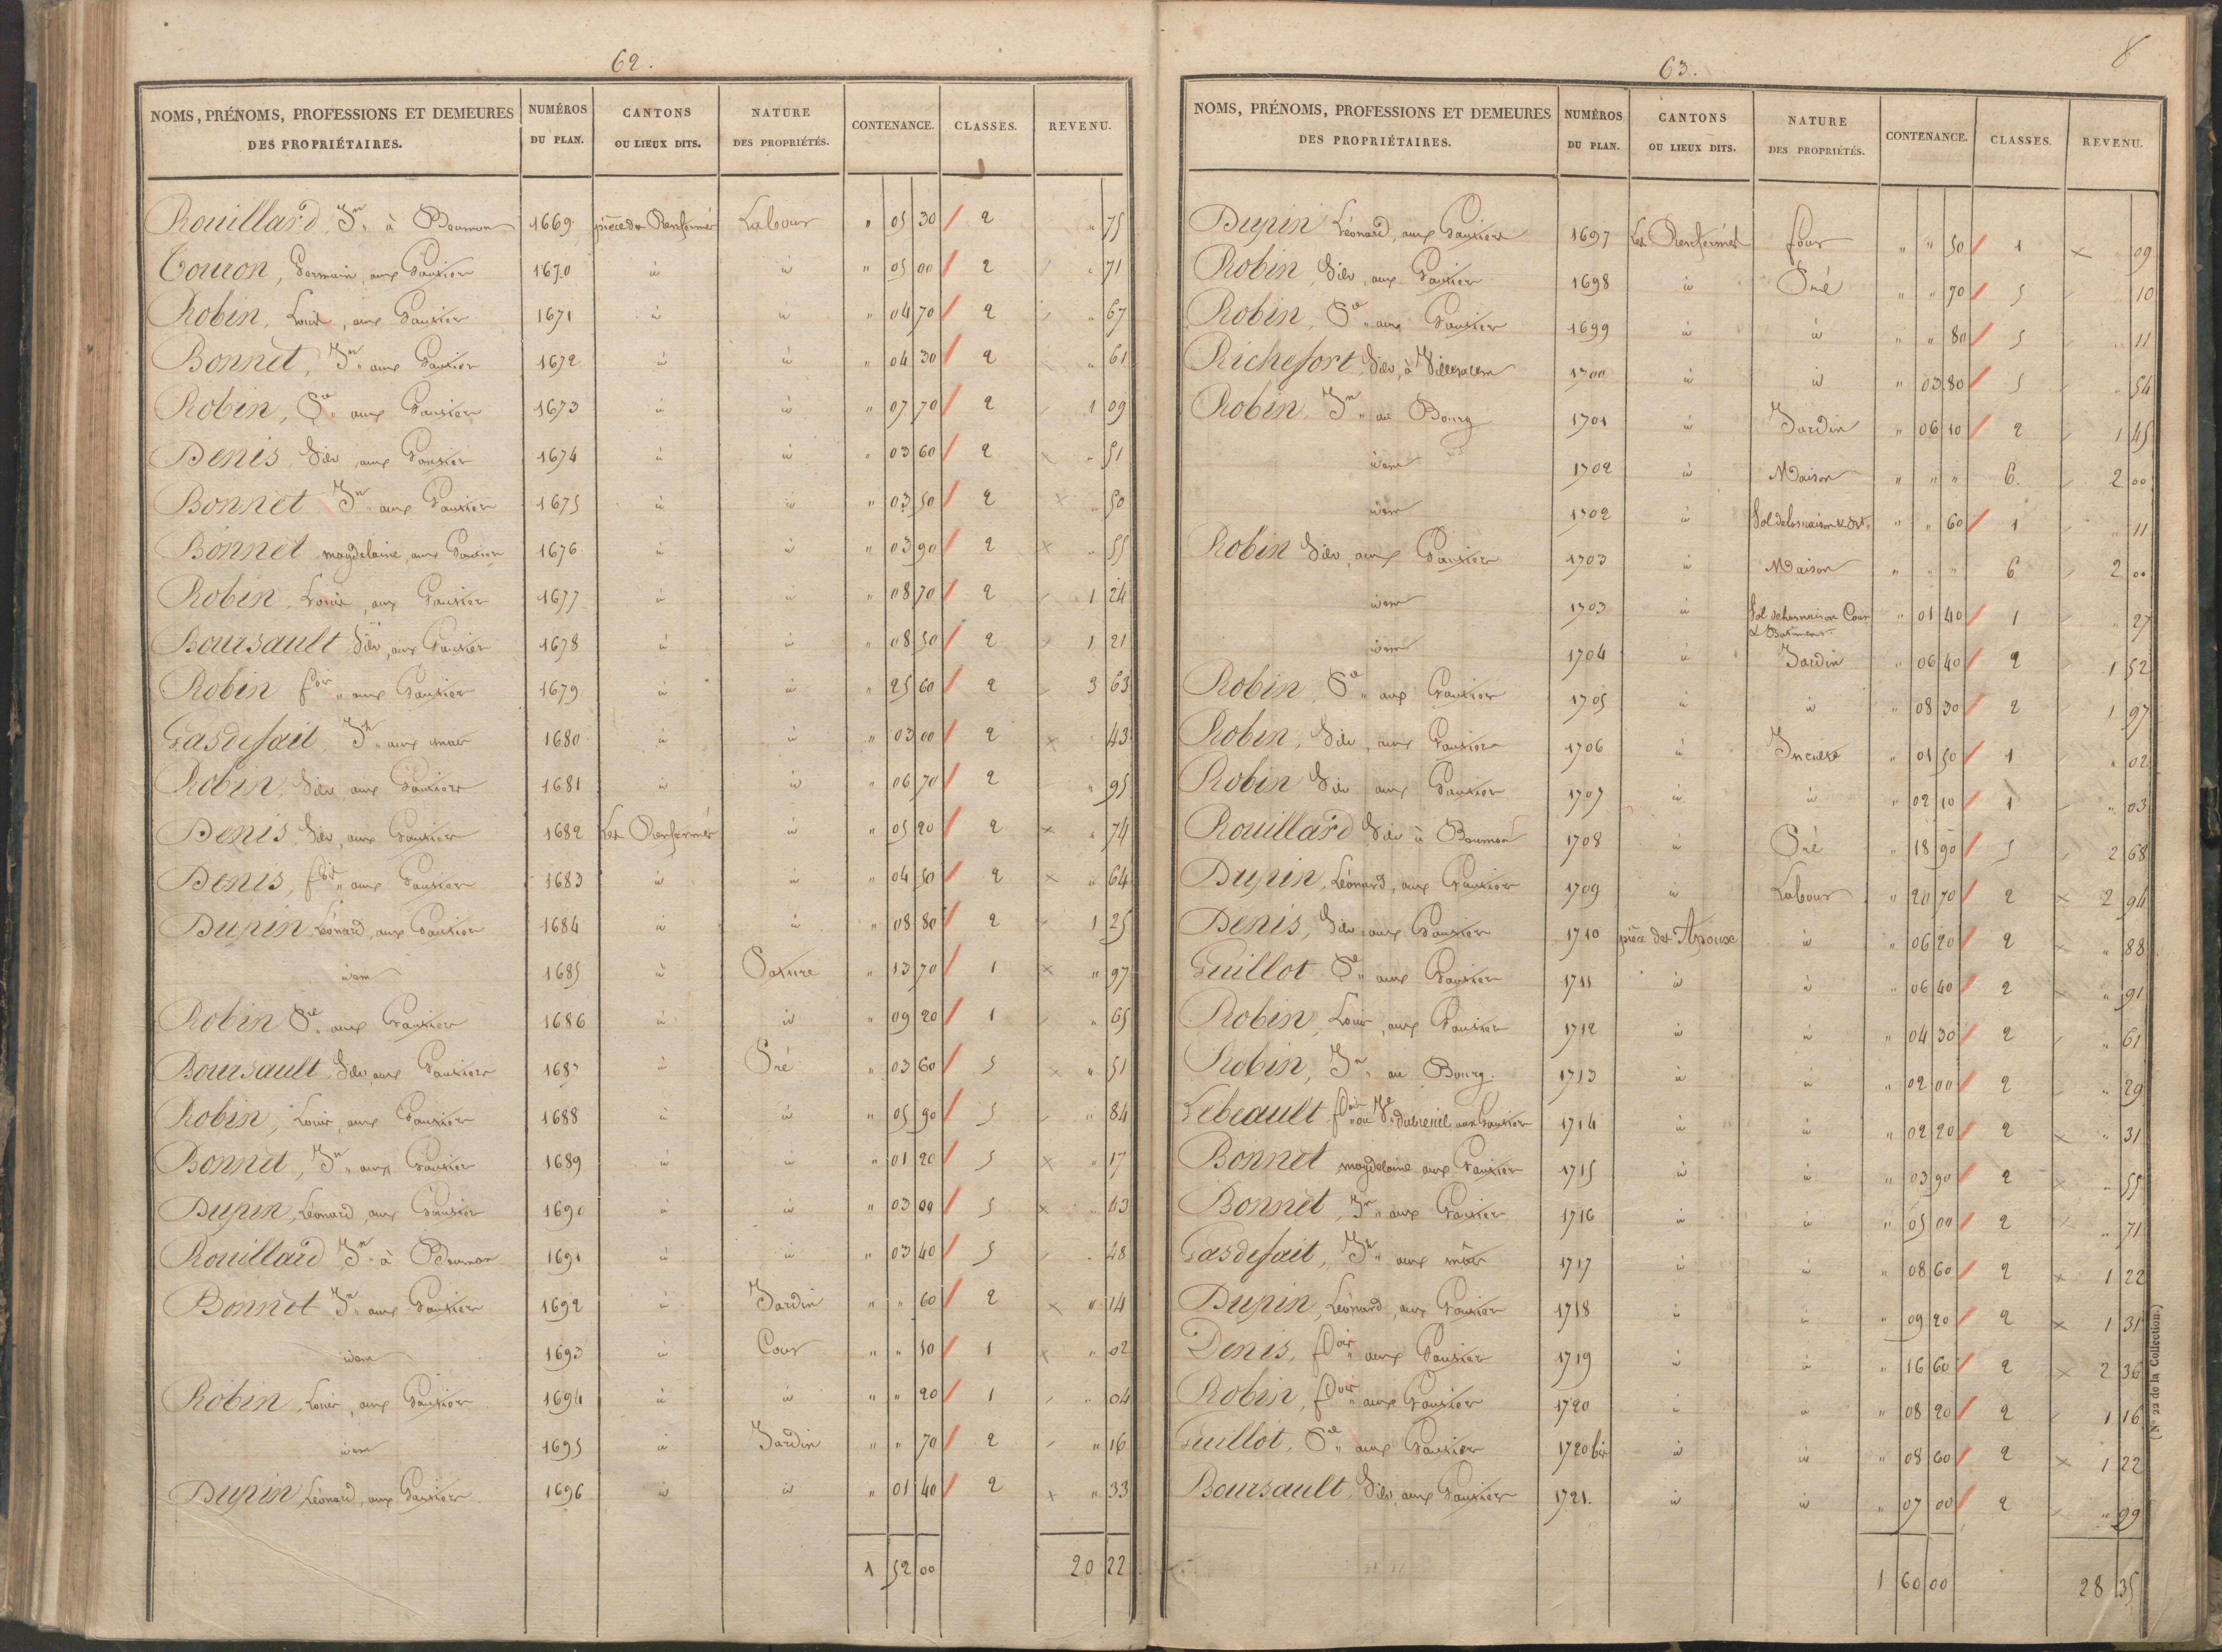 62.
NOMS, PRÉNOMS, PROFESSIONS ET DEMEURES DES PROPRIÉTAIRES. NUMÉROS DU PLAN. CANTONS OU LIEUX DITS. NATURE DES PROPRIÉTÉS. CONTENANCE. CLASSES. REVENU.
Rouillard Jn à Boumon 1669 pièce des Renfermés Labour " 05 30 2 " 75
Touron, Germain, aux Gautier 1670 id id " 05 00 2 " 71
Robin, Louis, aux Gautier 1671 id id " 04 70 2 " 67
Bonnet, Jn aux Gautier 1672 id id " 04 30 2 " 61
Robin, Pre aux Gautier 1673 id id " 07 70 2 1 09
Denis Silv aux Gautier 1674 id id " 03 60 2 " 51
Bonnet Jn aux Gautier 1675 id id " 03 50 2 " 50
Bonnet magdelaine, aux Gautier 1676 id id " 03 90 2 " 55
Robin, Louis, aux Gautier 1677 id id " 08 70 2 1 24
Boursault Silv, aux Gautier 1678 id id " 08 50 2 1 21
Robin fois aux Gautier 1679 id id " 25 60 2 3 63
Gasdefait, Jn aux mas 1680 id id " 03 00 2 " 43
Robin, Silv, aux Gautier 1681 id id " 06 70 2 " 95
Denis Silv, aux Gautier 1682 Les Renfermés id " 05 20 2 " 74
Denis, fois aux Gautier 1683 id id " 04 50 2 " 64
Dupin Léonard, aux Gautier 1684 id id " 08 80 2 1 25
idem 1685 id Pature " 13 70 1 " 97
Robin Pre aux Gautier 1686 id id " 09 20 1 " 65
Boursault Silv, aux Gautier 1687 id Pré " 03 60 5 " 51
Robin, Louis, aux Gautier 1688 id id " 05 90 5 " 84
Bonnet, Jn aux Gautier 1689 id id " 01 20 5 " 17
Dupin, Léonard, aux Gautier 1690 id id " 03 00 5 " 43
Rouillard Jn à Boumon 1691 id id " 03 40 5 " 48
Bonnet Jn aux Gautier 1692 id Jardin " " 60 2 " 14
idem 1693 id Cour " " 10 1 " 02
Robin, Louis, aux Gautier 1694 id id " " 20 1 " 04
idem 1695 id Jardin " " 70 2 " 16
Dupin, Léonard, aux Gautier 1696 id id " 01 40 2 " 33
1 52 00 20 22
63.
8
NOMS, PRÉNOMS, PROFESSIONS ET DEMEURES DES PROPRIÉTAIRES. NUMÉROS DU PLAN. CANTONS OU LIEUX DITS. NATURE DES PROPRIÉTÉS. CONTENANCE. CLASSES. REVENU.
Dupin Léonard, aux Gautier 1697 Les Renfermés four " " 50 1 " 09
Robin, Silv, aux Gautier 1698 id Pré " " 70 5 " 10
Robin, Pre aux Gautier 1699 id id " " 80 5 " 11
Richefort Silv, à 1700 id id " 03 80 5 " 54
Robin, Jn au Bourg 1701 id Jardin " 06 10 2 1 45
idem 1702 id Maison " " " 6. 2 00
idem 1702 id Sol de la maison & " " 60 1 " 11
Robin Silv, aux Gautier 1703 id Maison " " " 6 2 00
idem 1703 id Sol de la maison Cour & Batiment " 01 40 1 " 27
idem 1704 id Jardin " 06 40 2 1 52
Robin, Pre aux Gautier 1705 id id " 08 30 2 1 97
Robin, Silv, aux Gautier 1706 id Inculte " 01 50 1 " 02
Robin Silv aux Gautier 1707 id id " 02 10 1 " 03
Rouillard Silv à Boumon 1708 id Pré " 18 90 5 2 68
Dupin, Léonard, aux Gautier 1709 id Labour " 20 70 2 2 94
Denis, Silv aux Gautier 1710 pièce des id " 06 20 2 " 88
Guillot Pre aux Gautier 1711 id id " 06 40 2 " 91
Robin, Louis, aux Gautier 1712 id id " 04 30 2 " 61
Robin, Jn au Bourg. 1713 id id " 02 00 2 " 29
Lebeault fois ou Ve dubreuil aux Gautier 1714 id id " 02 20 2 " 31
Bonnet magdelaine aux Gautier 1715 id id " 03 90 2 " 55
Bonnet, Jn aux Gautier 1716 id id " 05 00 2 " 71
Gasdefait, Jn aux mas 1717 id id " 08 60 2 1 22
Dupin, Léonard, aux Gautier 1718 id id " 09 20 2 1 31
Denis, fois aux Gautier 1719 id id " 16 60 2 2 36
Robin, fois aux Gautier 1720 id id " 08 20 2 1 16
Guillot, Pre aux Gautier 1720 bis id id " 08 60 2 1 22
Boursault, Silv, aux Gautier 1721. id id " 07 00 2 " 99
1 60 00 28 35
(N° 22 de la Collection.)